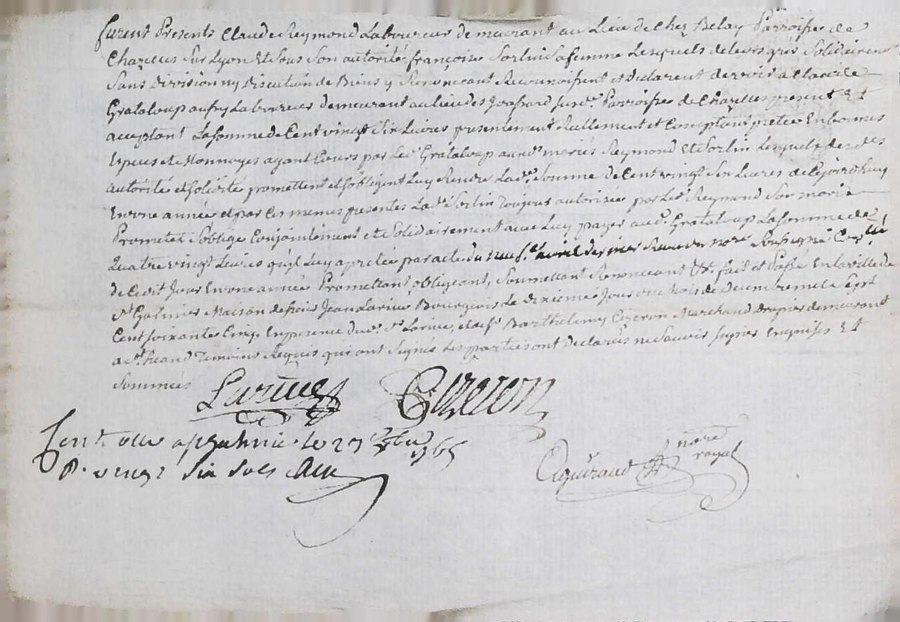 furent Presents Claude Reymond Laboureur demeurant au Lieu de Chez Belay Parroisse de
Chazelles sur Lyon Et sous Son autorité françoise Sorlin sa femme Lesquels de leurs gré Solidairement
Sans Division ny Discution de Biens y Renonceant Reconnoissent et declarent devoir a Claude
Grataloup aussy Laboureur demeurant au lieu des Parroisse de present Et
acceptant La somme de Cent vingt Six Livres presentement Reellement et Comptant pretée En bonnes
Especes de Monnoyes ayant Cours par Led. Grataloup auxd. mariés Reymond Et Sorlin Lesquels des dts
autorité et Solidité promettent et s'obligent Luy Rendre Lad. Somme de Cent vingt Six Livres de
En une année et par Ces memes presentes Lad. Sorlin Toujours autorisée par Led. Reymond Son mary
Promet et S'oblige Conjointement et Solidairement avec Luy payer aud. Grataloup La somme de
Quatre vingt Livres qu'il Luy a pretée par acte du avril dernier Reçu du nore Soussigné
de Ce dit Jour En une année Promettant obligeant, Soumettant Renonceant &c. fait et Passé En la ville de
St Galmier Maison de Sieur Jean Larüe Bourgeois Le dixieme Jour du Mois de Decembre mil sept
Cent soixante Cinq En presence dud. Sr Larüe, et de Sr Barthelemy Cozeron Marchand Drapier demeurant
Temoins Requis qui ont Signés Les parties ont declarés ne Sçavoir signer Enquises Et
Sommées
Larüe Cozeron
Cont. a St Galmier le 27 Xbre 1765
R. Six Sols
nore
royal